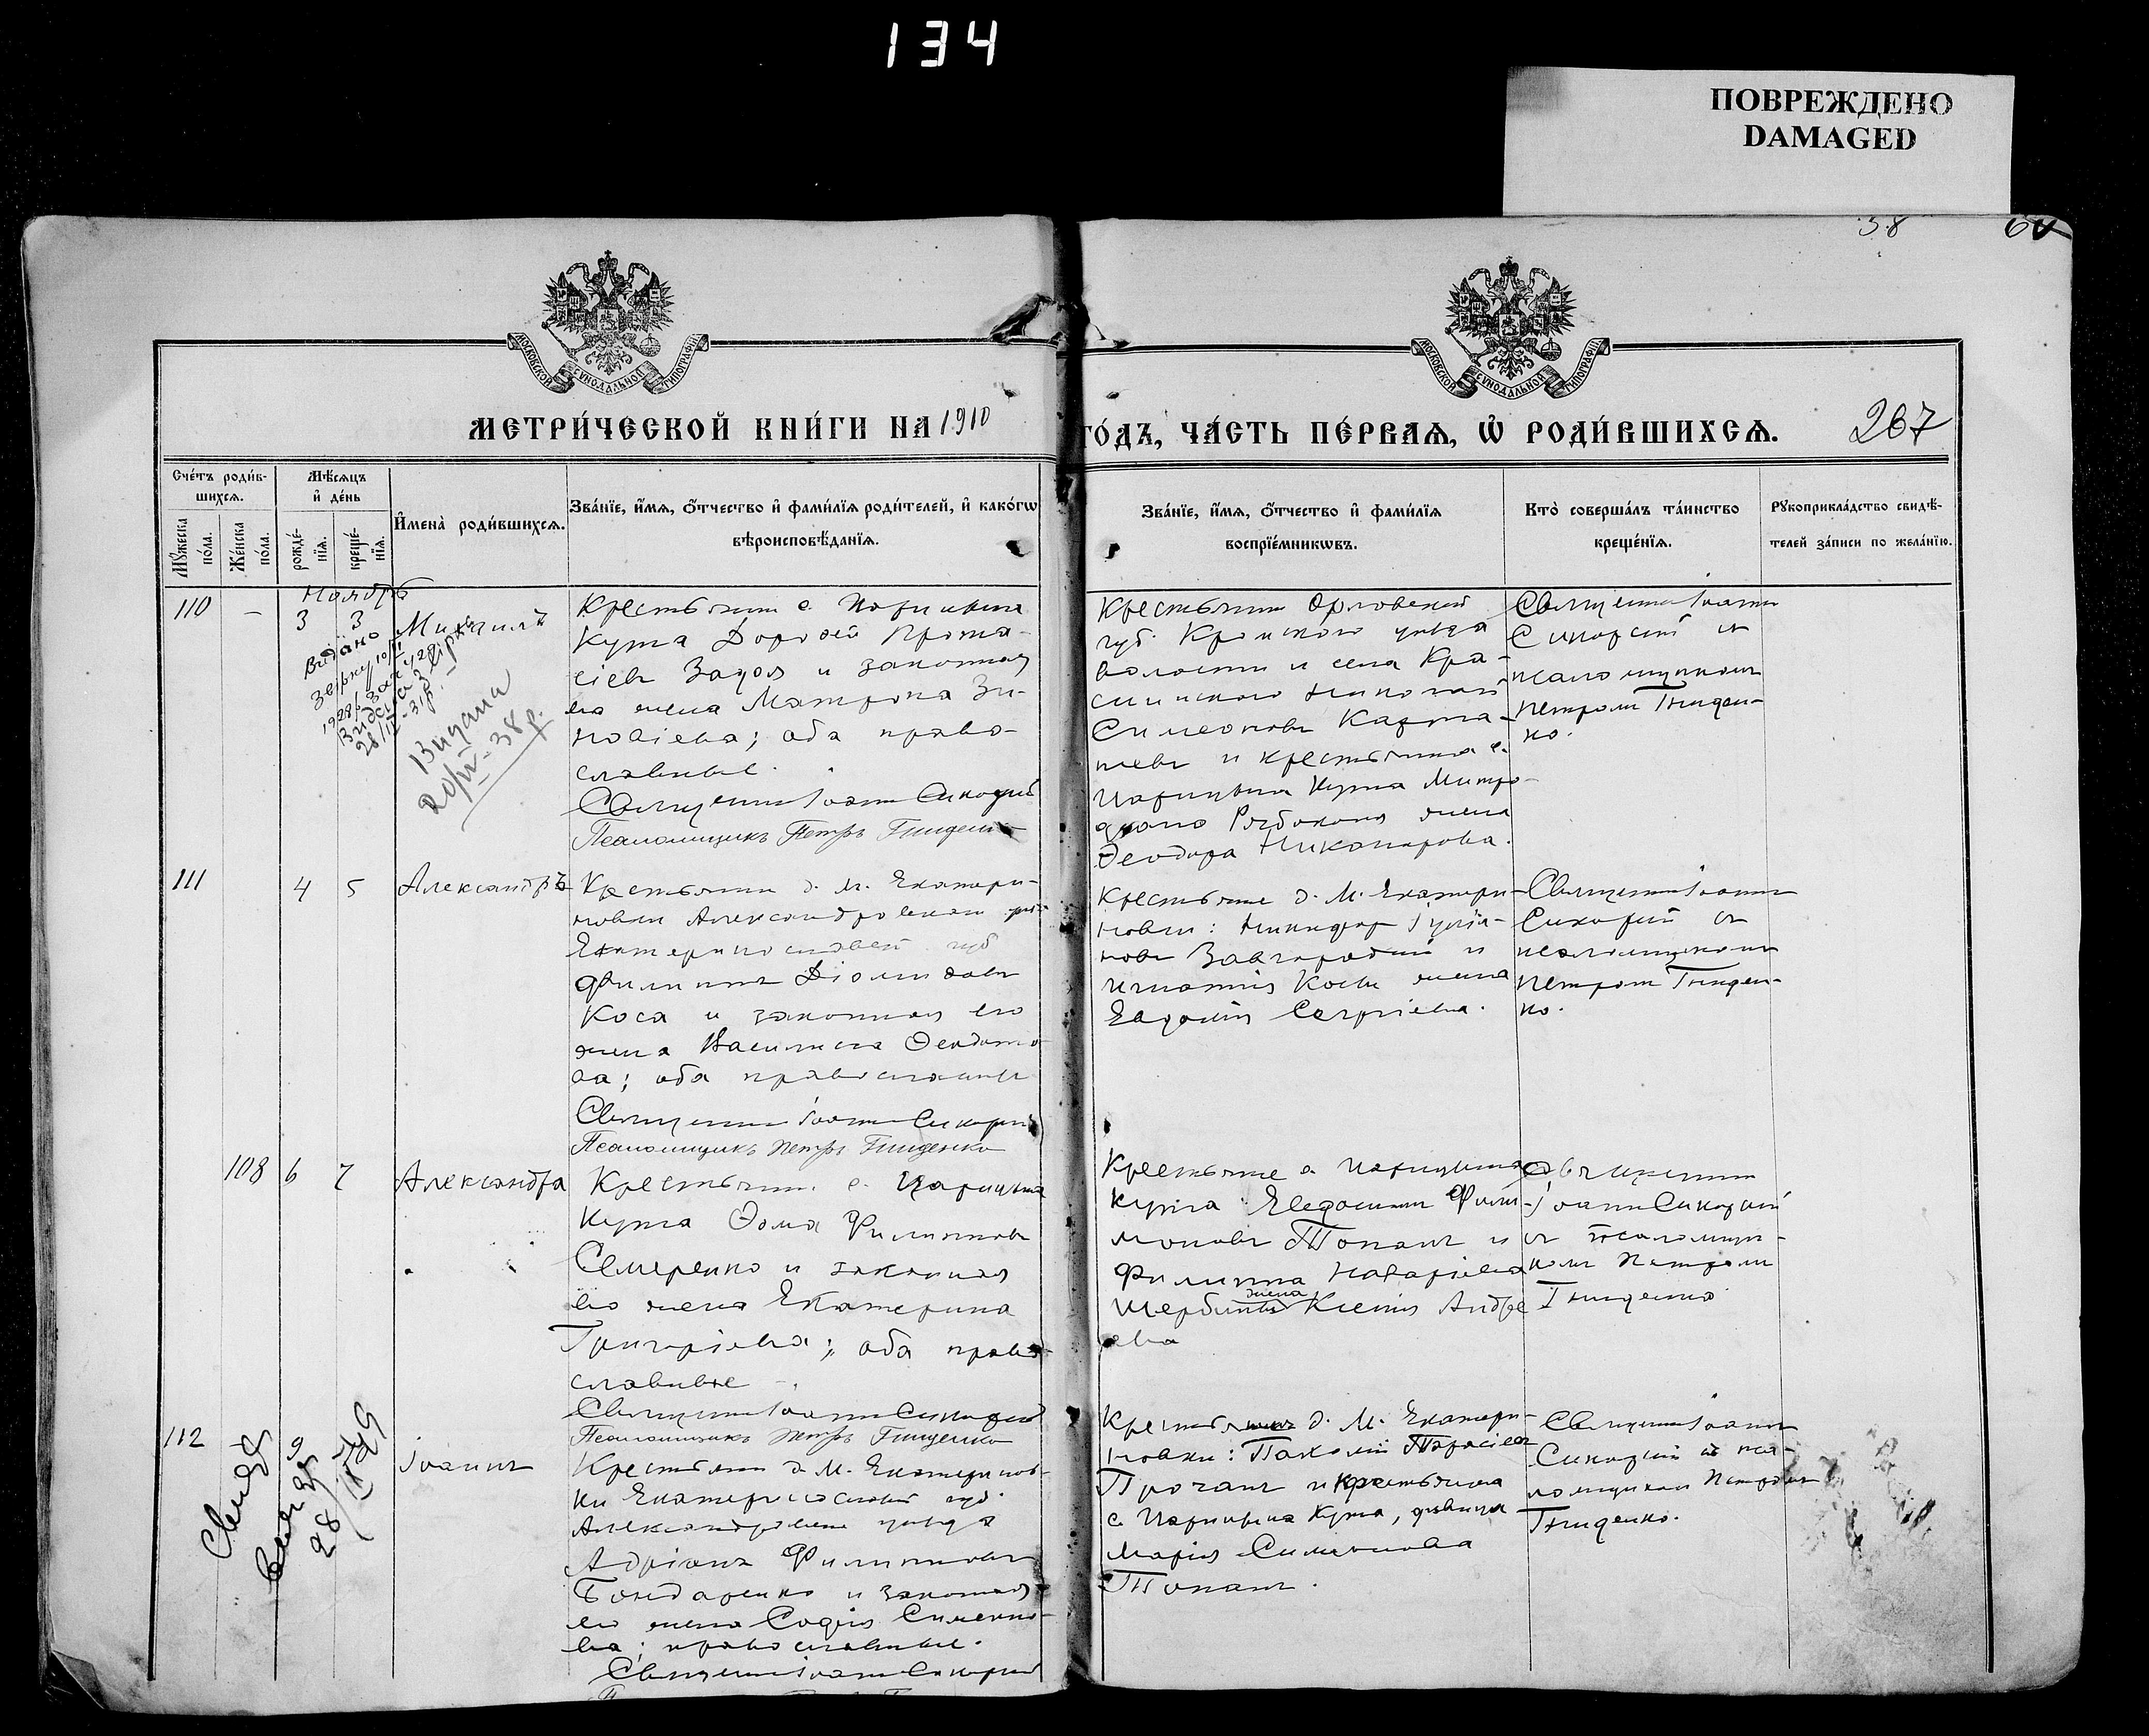 134
ПОВРЕЖДЕНО
DAMAGED
38
МОСКОВСКОЙ СѴНОДАЛЬНОЙ ТИПОГРАФІИ
МОСКОВСКОЙ СѴНОДАЛЬНОЙ ТИПОГРАФІИ
МЕТРИ́ЧЕСКОЙ КНИ́ГИ НА 1910
ГО́ДЪ, ЧА́СТЬ ПЕ́РВАѦ, Ѡ҆ РОДИ́ВШИХСѦ.
267
Сче́тъ роди́в-
шихсѧ.
Мꙋ́жеска по́ла.
Же́нска по́ла.
Мѣ́сѧцъ
и҆ де́нь
рожде́-
нїѧ.
креще́-
нїѧ.
И҆мена̀ роди́вшихсѧ.
Зва́нїе, и҆́мѧ, ѻ҆́тчество и҆ фами́лїѧ роди́телей, и҆ како́гѡ
вѣроисповѣ́данїѧ.
Зва́нїе, и҆́мѧ, ѻ҆́тчество и҆ фами́лїѧ
воспрїе́мникѡвъ.
Кто̀ соверша́лъ та́инство
креще́нїѧ.
Рꙋкоприкла́дство свидѣ́-
телей за́писи по жела́нїю.
Ноябрь
110 - 3 3 Михаилъ
Видано
Видана
Крестьянин с. Царицына
Кута Дорофей Прота-
сіевъ и законная
его жена Матрона Зи-
новіева; оба право-
славные.
Священник Іоанн Сикорский
Псаломщикъ Петръ Гниденко
Крестьянин Орловской
губ. Кромского уезда
волости и села Кра-
Николай
Симеоновъ
и крестьянина с.
Царицына Кута Митро-
фана Рябоконя жена
Феодора Никанорова.
Священник Іоанн
Сикорский съ
псаломщиком
Петром Гниден-
ко.
111 4 5 Александръ
Крестьянин д. М. Екатери-
новки Александровскаго
Екатеринославской губ
Филиппъ Діомидовъ
Коса и законная его
жена Василиса Феодото-
ва; оба православные
Священник Іоанн Сикорский
Псаломщикъ Петръ Гниденко
Крестьяне д. М. Екатери-
новки: Никифор Іуліа-
новъ Завгородній и
Игнатія Косы жена
Евдокія Сергіева.
Священник Іоанн
Сикорский съ
псаломщиком
Петром Гниден-
ко.
108 6 7 Александра
Крестьянин с. Царицына
Кута Фома Филипповъ
Семеренко и законная
его жена Екатерина
Григоріева; оба право-
славные
Священник Іоанн Сикорский
Псаломщикъ Петръ Гниденко
Крестьяне с. Царицына
Кута Евдоким Фили-
моновъ Топалъ и
Филиппа Назаріева
жена
Щербины Ксенія Андре
ева
Священник
Іоанн Сикорский
съ псаломщи-
ком Петром
Гниденко
112 9 Іоаннъ
28/IV 29
Крестьянин д. М. Екатеринов-
ки Екатеринославской губ.
Александровского уезда
Адріанъ Филипповъ
Бондаренко и законная
его жена Софія Симеоно-
ва; православные.
Священник Іоанн Сикорский
д. М. Екатери-
новки: Пахомій Тарасіевъ
и крестьянка
с. Царицына Кута, девица
Марія Симеонова
Топалъ.
Священник Іоанн
Сикорский съ пса-
ломщиком Петром
Гниденко.